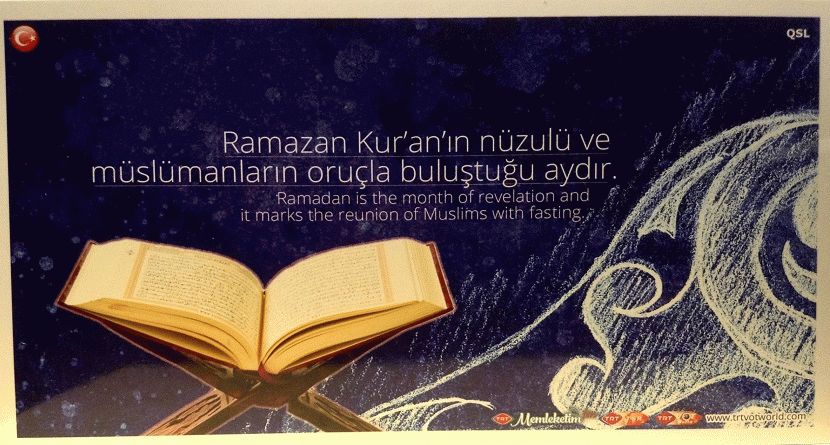 QSL
Ramazan Kur'an'ın nüzulü ve
müslümanların oruçla buluştuğu aydır.
Ramadan is the month of revelation and
it marks the reunion of Muslims with fasting.
TRT Memleketim TRT TSR TRT www.trtvotworld.com